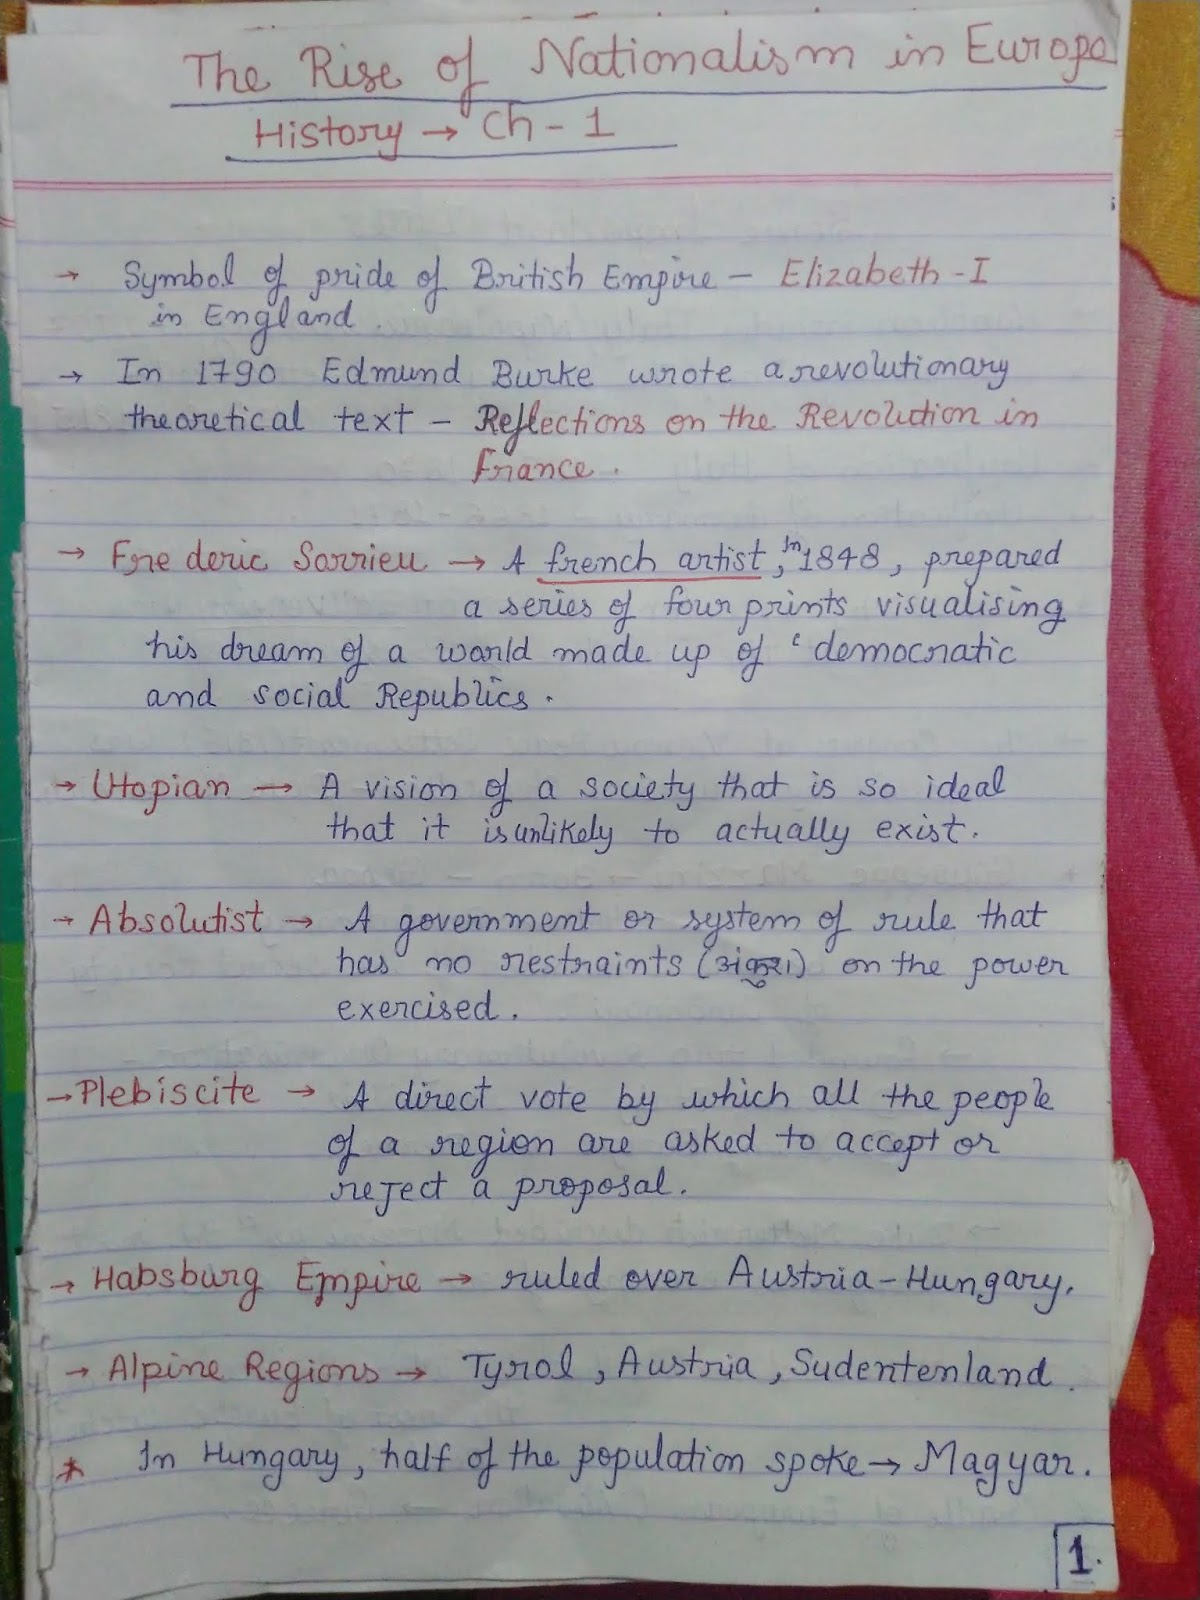 The Rise of Nationalism in Europe
History → Ch - 1
→ Symbol of pride of British Empire – Elizabeth - I
in England.
→ In 1790 Edmund Burke wrote a revolutionary
theoretical text – Reflections on the Revolution in
France.
→ Frederic Sorrieu → A french artist, In 1848, prepared
a series of four prints visualising
his dream of a world made up of ‘democratic
and social Republics.
→ Utopian → A vision of a society that is so ideal
that it is unlikely to actually exist.
→ Absolutist → A government or system of rule that
has no restraints (अंकुश) on the power
exercised.
→ Plebiscite → A direct vote by which all the people
of a region are asked to accept or
reject a proposal.
→ Habsburg Empire → ruled over Austria – Hungary.
→ Alpine Regions → Tyrol, Austria, Sudentenland.
* In Hungary, half of the population spoke → Magyar.
1.